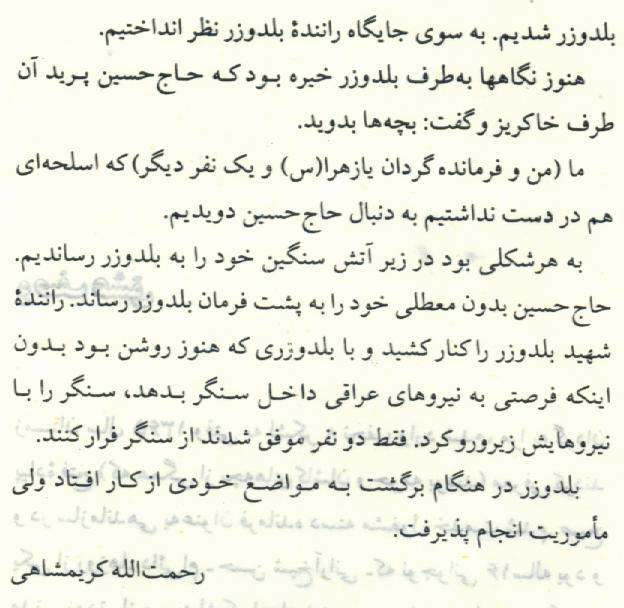 بلدوزر شدیم. به سوی جایگاه رانندهٔ بلدوزر نظر انداختیم.
هنوز نگاهها به‌طرف بلدوزر خیره بود که حاج‌حسین پرید آن
طرف خاکریز و گفت: بچه‌ها بدوید.
ما (من و فرمانده گردان یازهرا(س) و یک نفر دیگر) که اسلحه‌ای
هم در دست نداشتیم به دنبال حاج‌حسین دویدیم.
به هرشکلی بود در زیر آتش سنگین خود را به بلدوزر رساندیم.
حاج‌حسین بدون معطلی خود را به پشت فرمان بلدوزر رساند. رانندهٔ
شهید بلدوزر را کنار کشید و با بلدوزری که هنوز روشن بود بدون
اینکه فرصتی به نیروهای عراقی داخل سنگر بدهد، سنگر را با
نیروهایش زیرورو کرد. فقط دو نفر موفق شدند از سنگر فرار کنند.
بلدوزر در هنگام برگشت به مواضع خودی از کار افتاد ولی
مأموریت انجام پذیرفت.
رحمت‌الله کریمشاهی